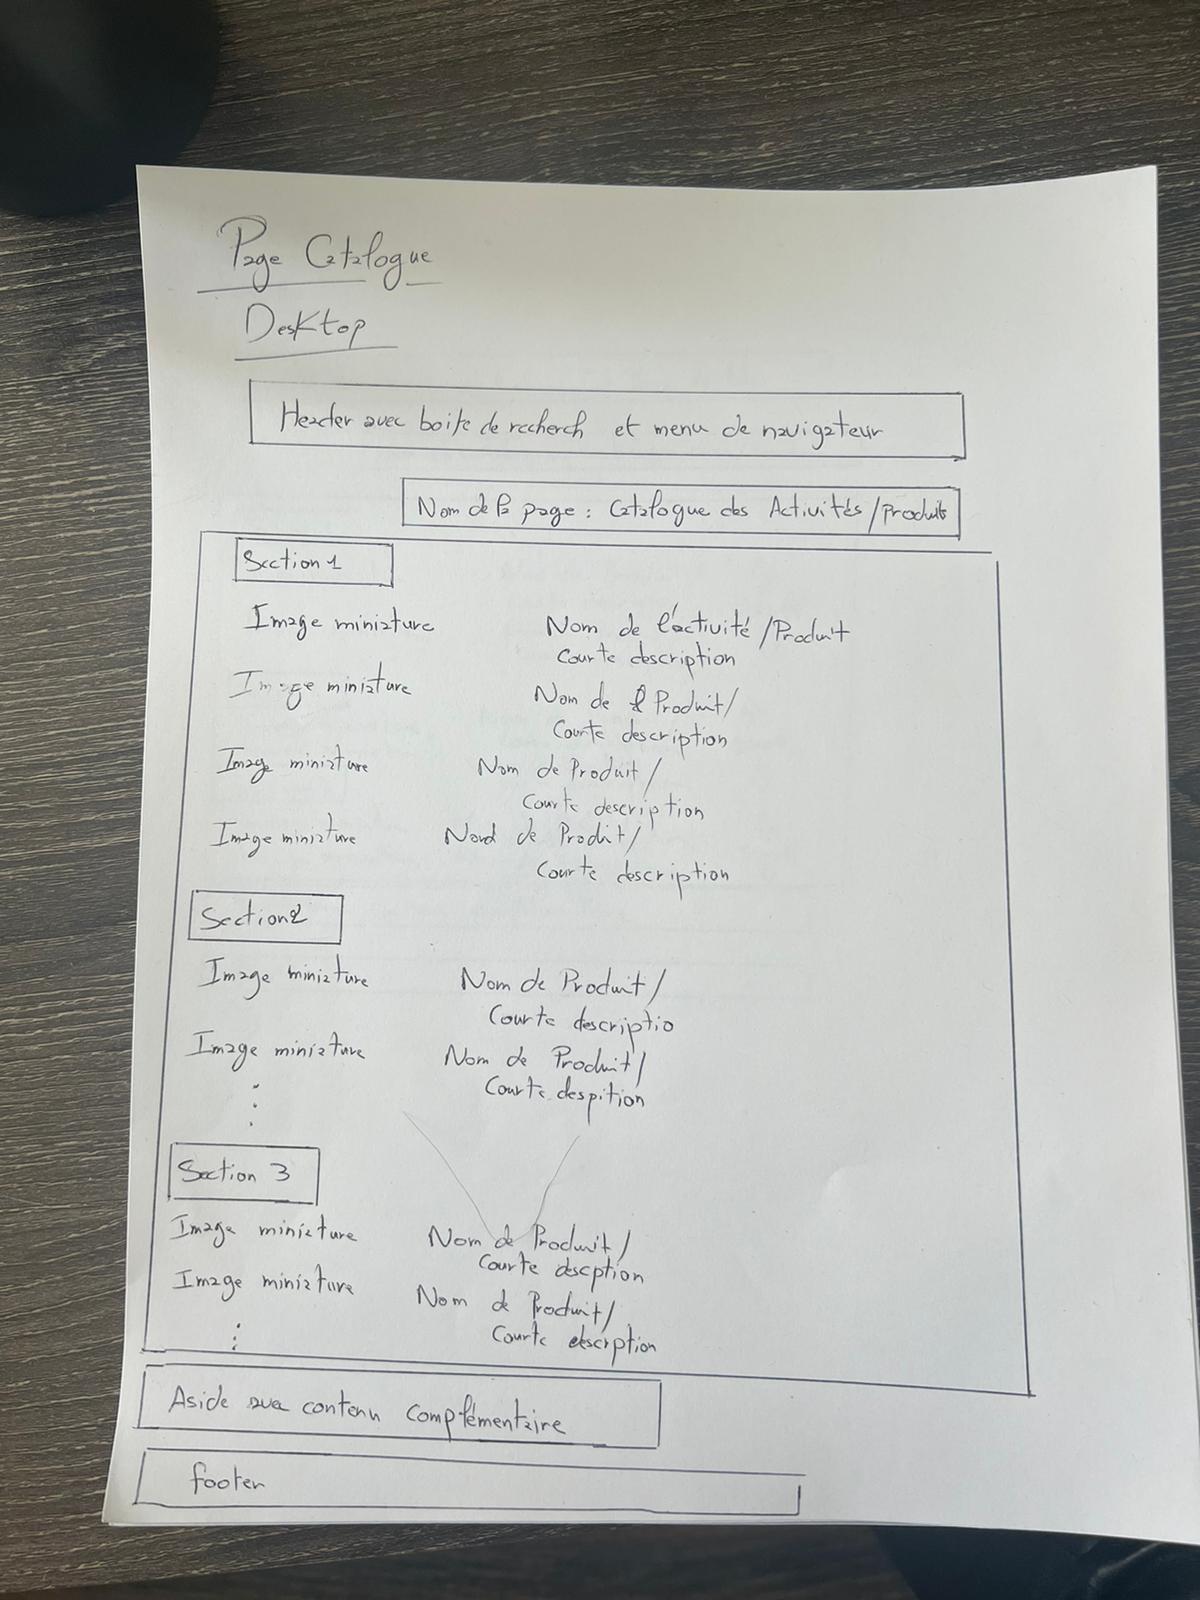 Page Catalogue
Desktop
Header avec boite de recherch et menu de navigateur
Nom de la page : Catalogue des Activités/Produits
Section 1
Image miniature Nom de l'activité/Produit
Courte description
Image miniature Nom de Produit/
Courte description
Image miniature Nom de Produit/
Courte description
Image miniature Nord de Produit/
Courte description
Section2
Image miniature Nom de Produit/
Courte descriptio
Image miniature Nom de Produit/
Courte despition
Section 3
Image miniature Nom de Produit/
Courte descption
Image miniature Nom de Produit/
Courte descrption
Aside avec contenu complémentaire
footer